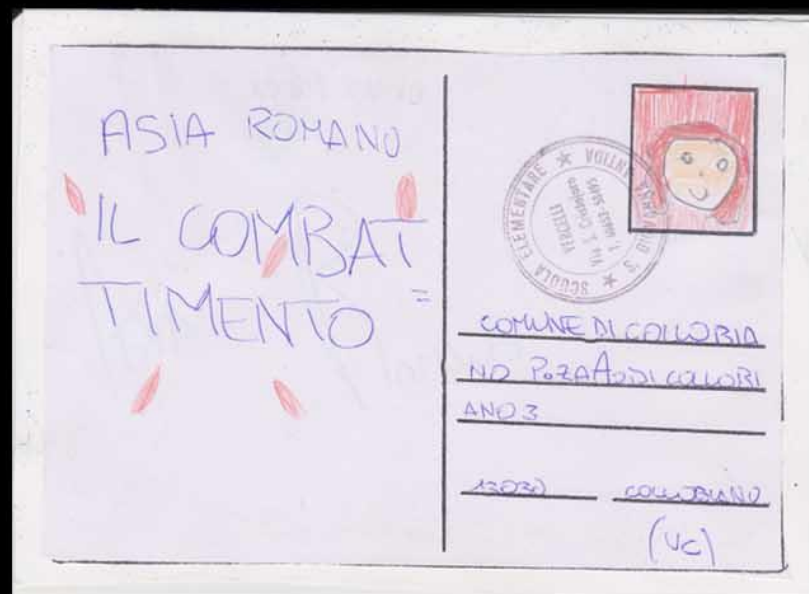 ASIA ROMANO
IL COMBAT
TIMENTO =
SCUOLA ELEMENTARE ★
VERCELLI
COMUNE DI COLLOBIA
NO
DI COLLOBI
ANO 3
13030 COLLOBIANO
(VC)